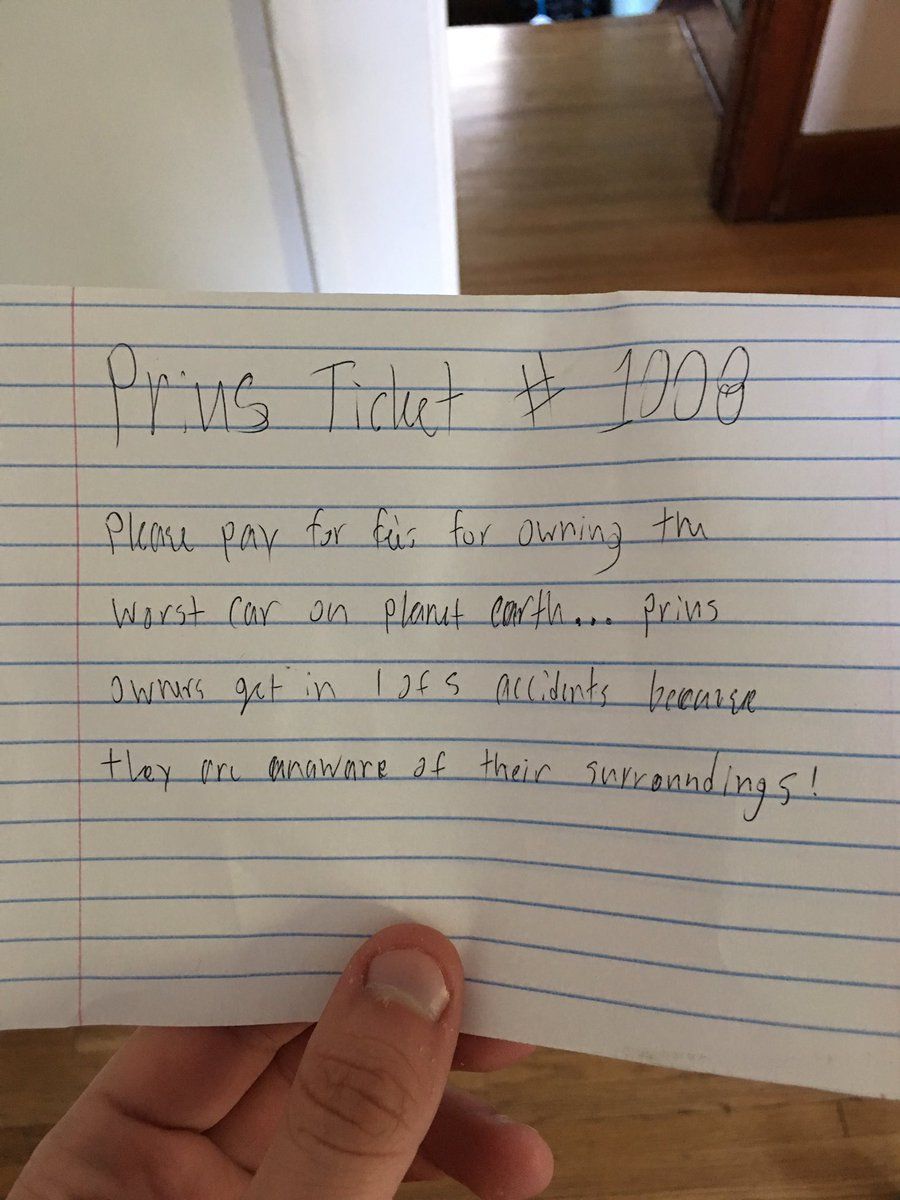 Prius Ticket # 1008
Please pay for feis for owning the
worst car on planet earth... prius
owners get in 1 of 5 accidents because
they are unaware of their surroundings!